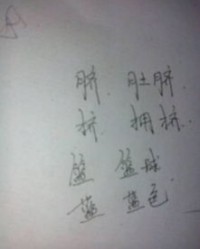 脐 肚脐
挤 拥挤
篮 篮球
蓝 蓝色